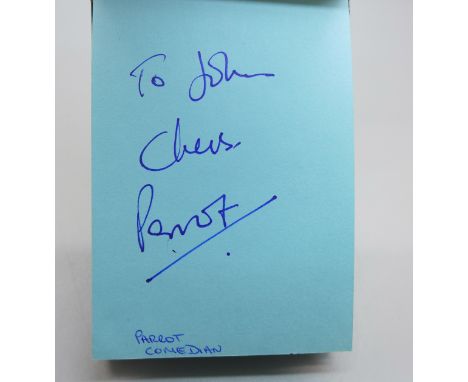 To John
Cheers
Parrot
PARROT
COMEDIAN